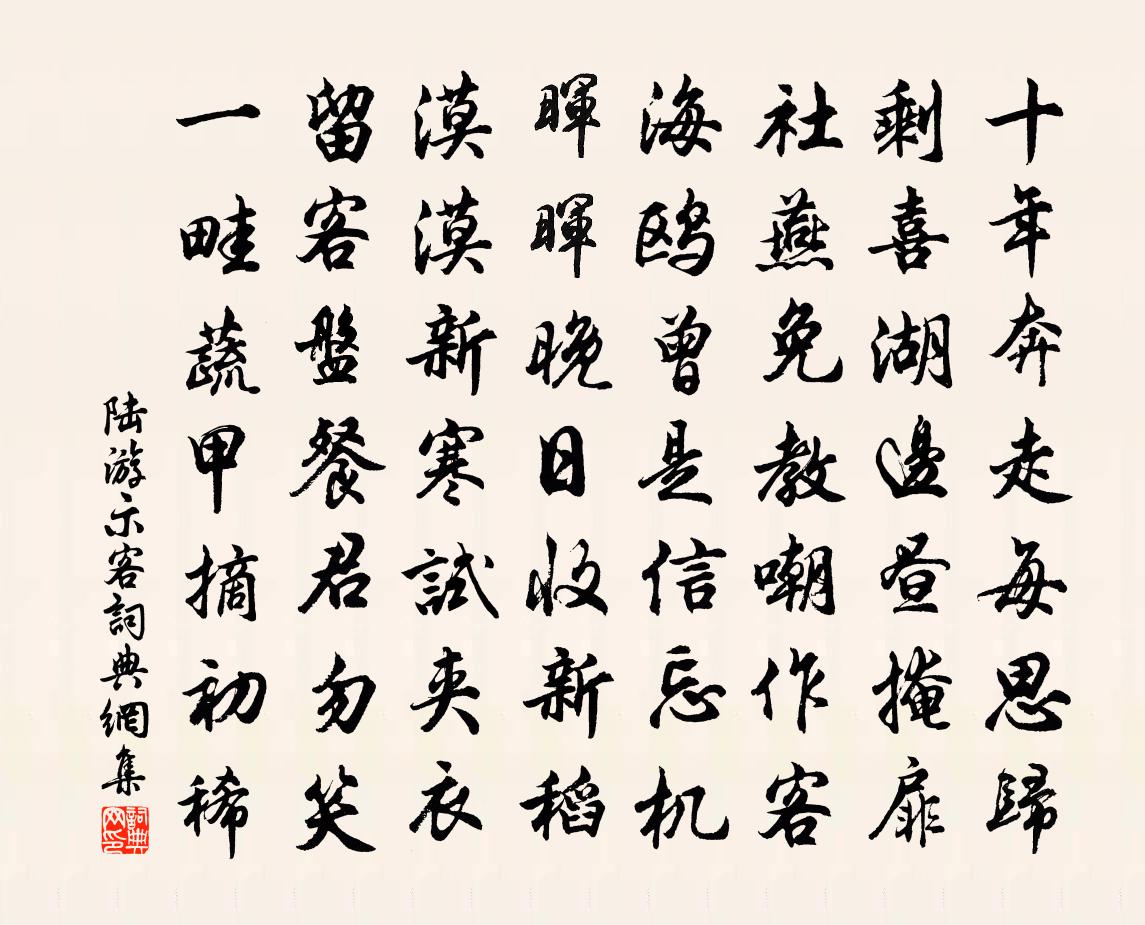 十年奔走每思歸
剩喜湖邊晝掩扉
社燕免教嘲作客
海鷗曾是信忘机
暉暉晚日收新稻
漠漠新寒試夾衣
留客盤餐君勿笑
一畦蔬甲摘初稀
陆游示客詞典網集
詞典网印